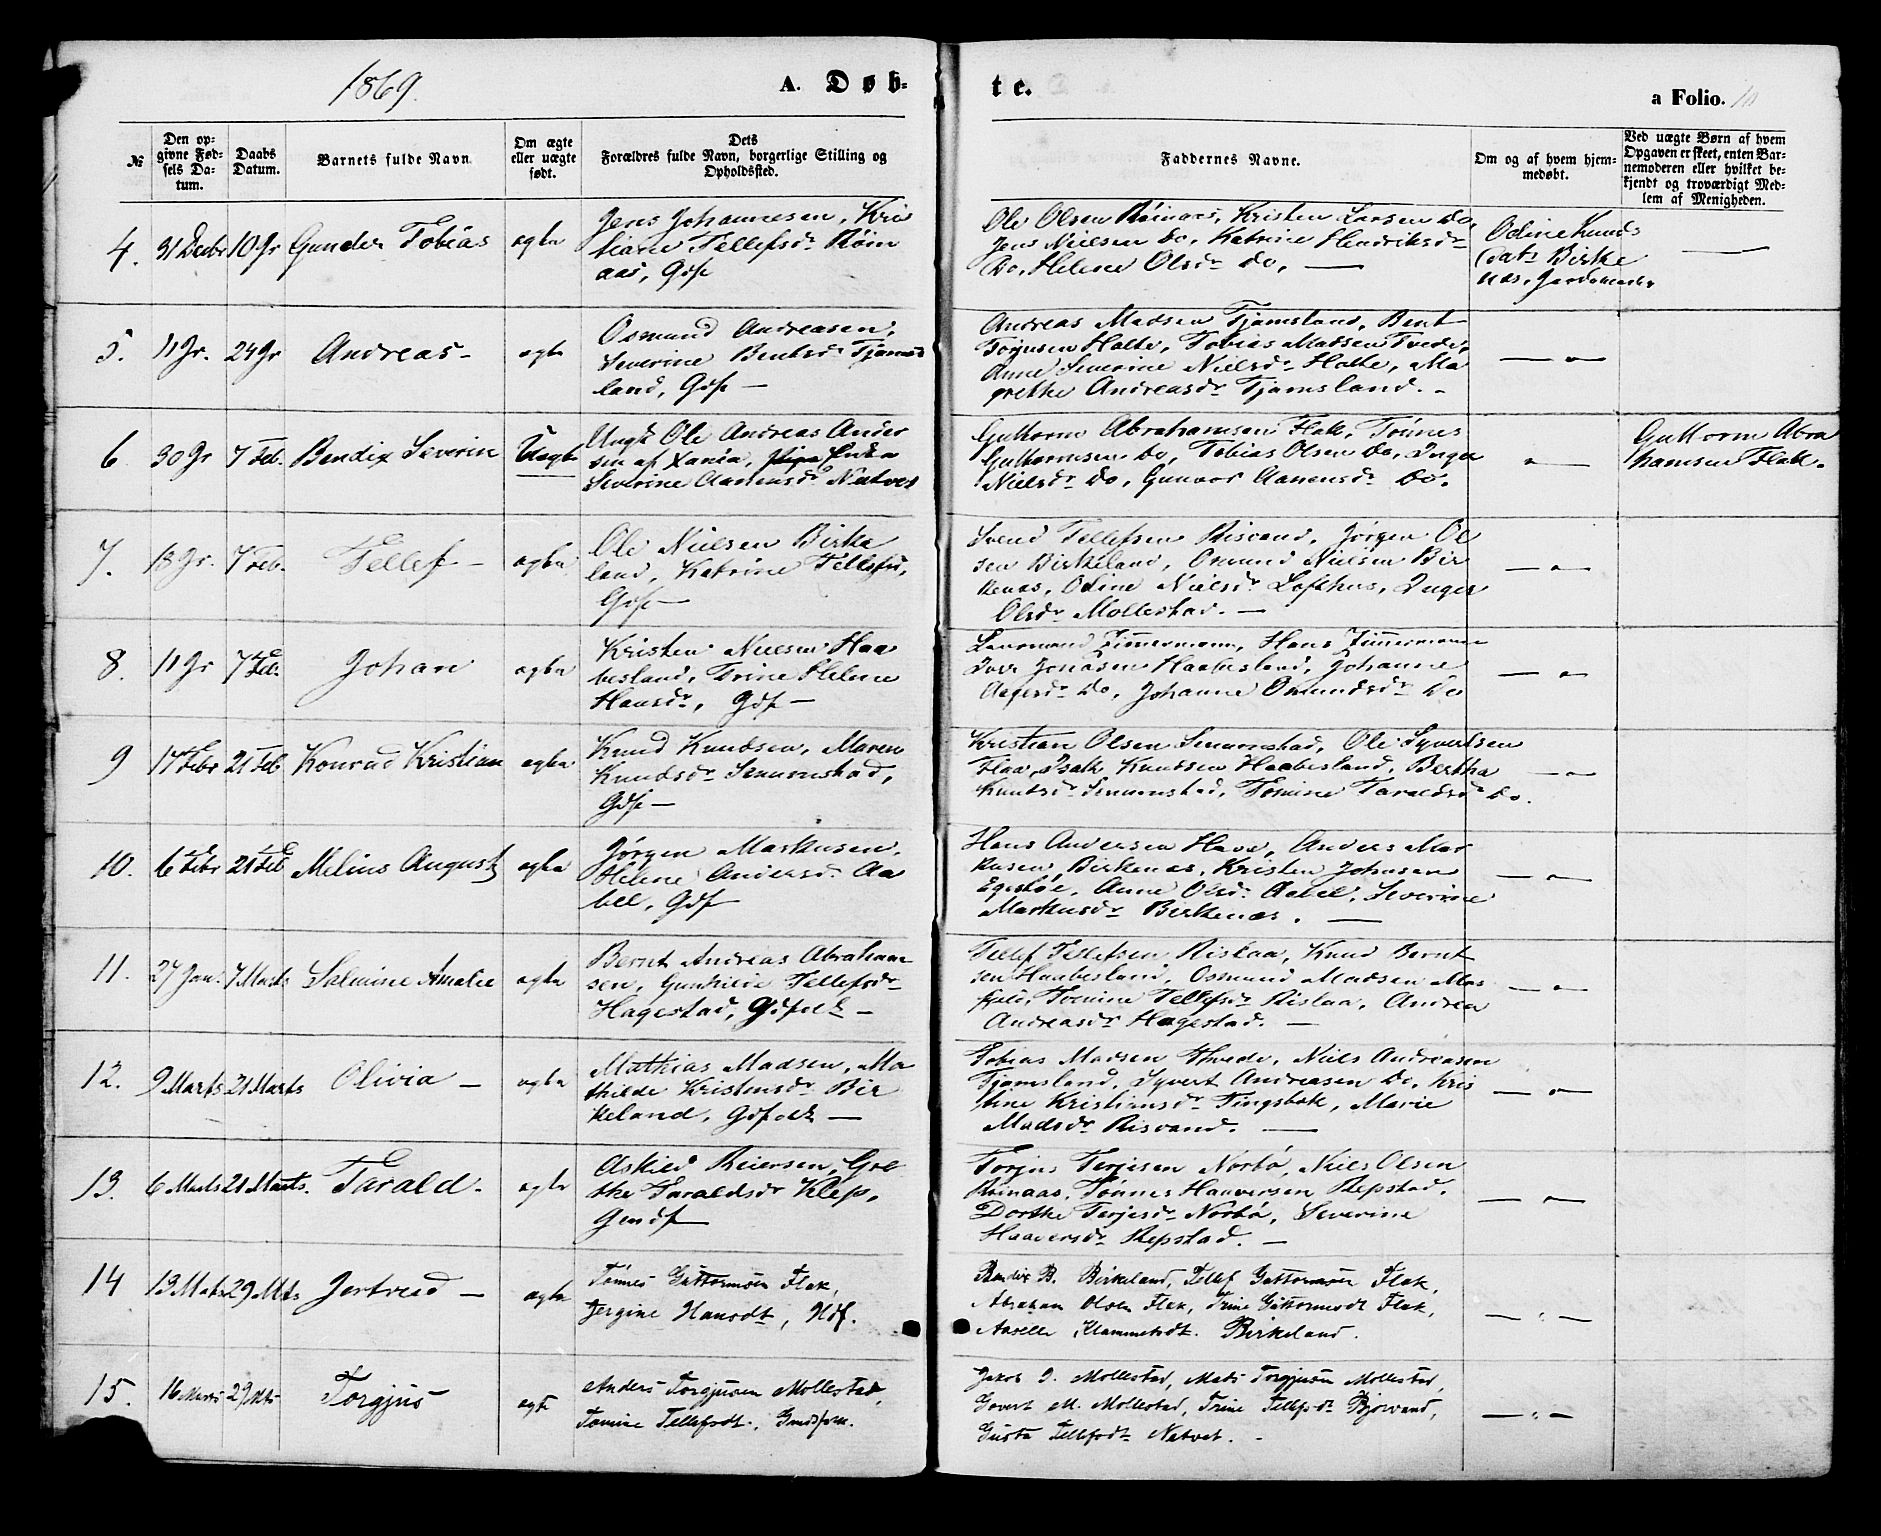 1869.
A. Døb-
te.
a Folio. 10
№
Den op-
givne Fød-
sels Da-
tum.
Daabs
Datum.
Barnets fulde Navn.
Om ægte
eller uægte
født.
Dets
Forældres fulde Navn, borgerlige Stilling og
Opholdssted.
Faddernes Navne.
Om og af hvem hjem-
medøbt.
Ved uægte Børn af hvem
Opgaven er skeet, enten Bar-
nemoderen eller hvilket be-
kjendt og troværdigt Med-
lem af Menigheden.
4. 31 Decbr 10 Jr Gunder Tobias ægte
Jens Johannesen, Kri
stiane Tellefsdr Røin
aas, Gdf
Ole Olsen Røinaas, Kristen Larsen Do,
Jens Nielsen Do, Katrine Hendriksdr
Do, Helene Olsdr Do, —
Odine Knuds
Datr Birke
næs,
—
5. 11 Jr. 24 Jr Andreas - ægte
Osmund Andreasen,
Severine Bentsdr Tjams
land, Gdf —
Andreas Madsen Tjamsland, Bent
Torjusen Hatte, Tobias Madsen Tvede,
Anne Severine Nielsdr Hatte, Ma
grethe Andreasdr Tjamsland. -
— " —
6 30 Jr 7 Feb. Bendix Severin Uægte
Ungk Ole Andreas Ander
sen af Xania, Enka
Severine Aanensdr Natvet
Guttorm Abrahamsen Flak, Tønnes
Guttormsen Do, Tobias Olsen Do, Inger
Nielsdr Do, Gunvor Aanensdr Do.
" —
Guttorm Abra
hamsen Flak.
7. 18 Jr. 7 Feb. Tellef - ægte
Ole Nielsen Birke
land, Katrine Tellefsd,
Gdf —
Svend Tellefsen Risvand, Jørgen Ol
sen Birkeland, Osmund Nielsen Bir
kenæs, Odine Nielsdr Lofthus, Inger
Olsdr Mollestad. —
— " —
8. 11 Jr 7 Feb. Johan ægte
Kristen Nielsen Haa
besland, Trine Helene
Hansdr, Gdf —
Zimmermann, Hans Zimmermann
Iver Jonasen Haabesland, Johanne
Aagesdr Do, Johanne Osmundsdr Do
— " —
9 17 Febr 21 Feb Konrad Kristian ægte
Knud Knudsen, Maren
Knudsdr Senumstad,
Gdf —
Kristian Olsen Senumstad, Ole Syvertsen
Flaa, Isak Knudsen Haabesland, Bertha
Knudsdr Senumstad, Tomine Taraldsdr Do.
— " —
10. 6 Febr 21 Feb Melius August ægte
Jørgen Markusen,
Helene Andersd. Aa
bel, Gdf
Hans Andersen Have, Anders Mar
kusen, Birkenæs, Kristen Johnsen
Anne Olsdr Aabel, Severine
Markusdr Birkenæs. —
— " —
11. 27 Jan. 7 Marts Salmine Amalie ægte
Bernt Andreas Abraham
sen, Gunhilde Tellefsdr
Hagestad, Gdfolk —
Tellef Tellefsen Rislaa, Knud Bernt
sen Haabesland, Osmund Madsen Mos
Tomine Tellefsdr Rislaa, Andrea
Andreasdr Hagestad. —
— " —
12. 9 Marts 21 Marts Olivia — ægte
Mathias Madsen, Ma
thilde Kristensdr Bir
keland, Gdfolk —
Tobias Madsen Thvede, Niels Andreasen
Tjamsland, Syvert Andreasen Do, Kris
tine Kristiansdr Tingsbak, Marie
Madsdr Risvand. —
— " —
13. 6 Marts 21 Marts. Tarald - ægte
Askild Reiersen, Gre
the Taraldsdr Klep,
Gmdf
Torjus Terjesen Norbø, Niels Olsen
Røinaas, Tønnes Haaversen Repstad,
Dorthe Terjesdr Norbø, Severine
Haaversdr Repstad. —
— " —
14 13 Marts 29 Mts Jertrud — ægte
Tønnes Guttormsen Flak,
Jergine Hansdt, Hdf.
Bendix B. Birkeland, Tellef Guttormsen Flak,
Abraham Olsen Flak, Trine Guttormsdt Flak,
Aaselle Klammetsdt. Birkeland.
— " —
15. 16 Marts 29 Mts Torgjus ægte
Anders Torgjusen Mollestad,
Tomine Tellefsdt., Gmdsfolk.
Jakob J. Mollestad, Mads Torgjusen Mollestad,
Govert M. Mollestad, Trine Tellefsdt Bjorvand,
Gusta Tellefsdt Natvet. -
— " —